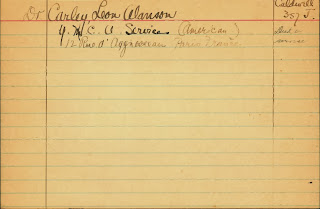 Caldwell
Dr Carley Leon Alanson 357 J.
Y. M. C. A Service (American)
12 Rue d'Aggnesseau Paris France